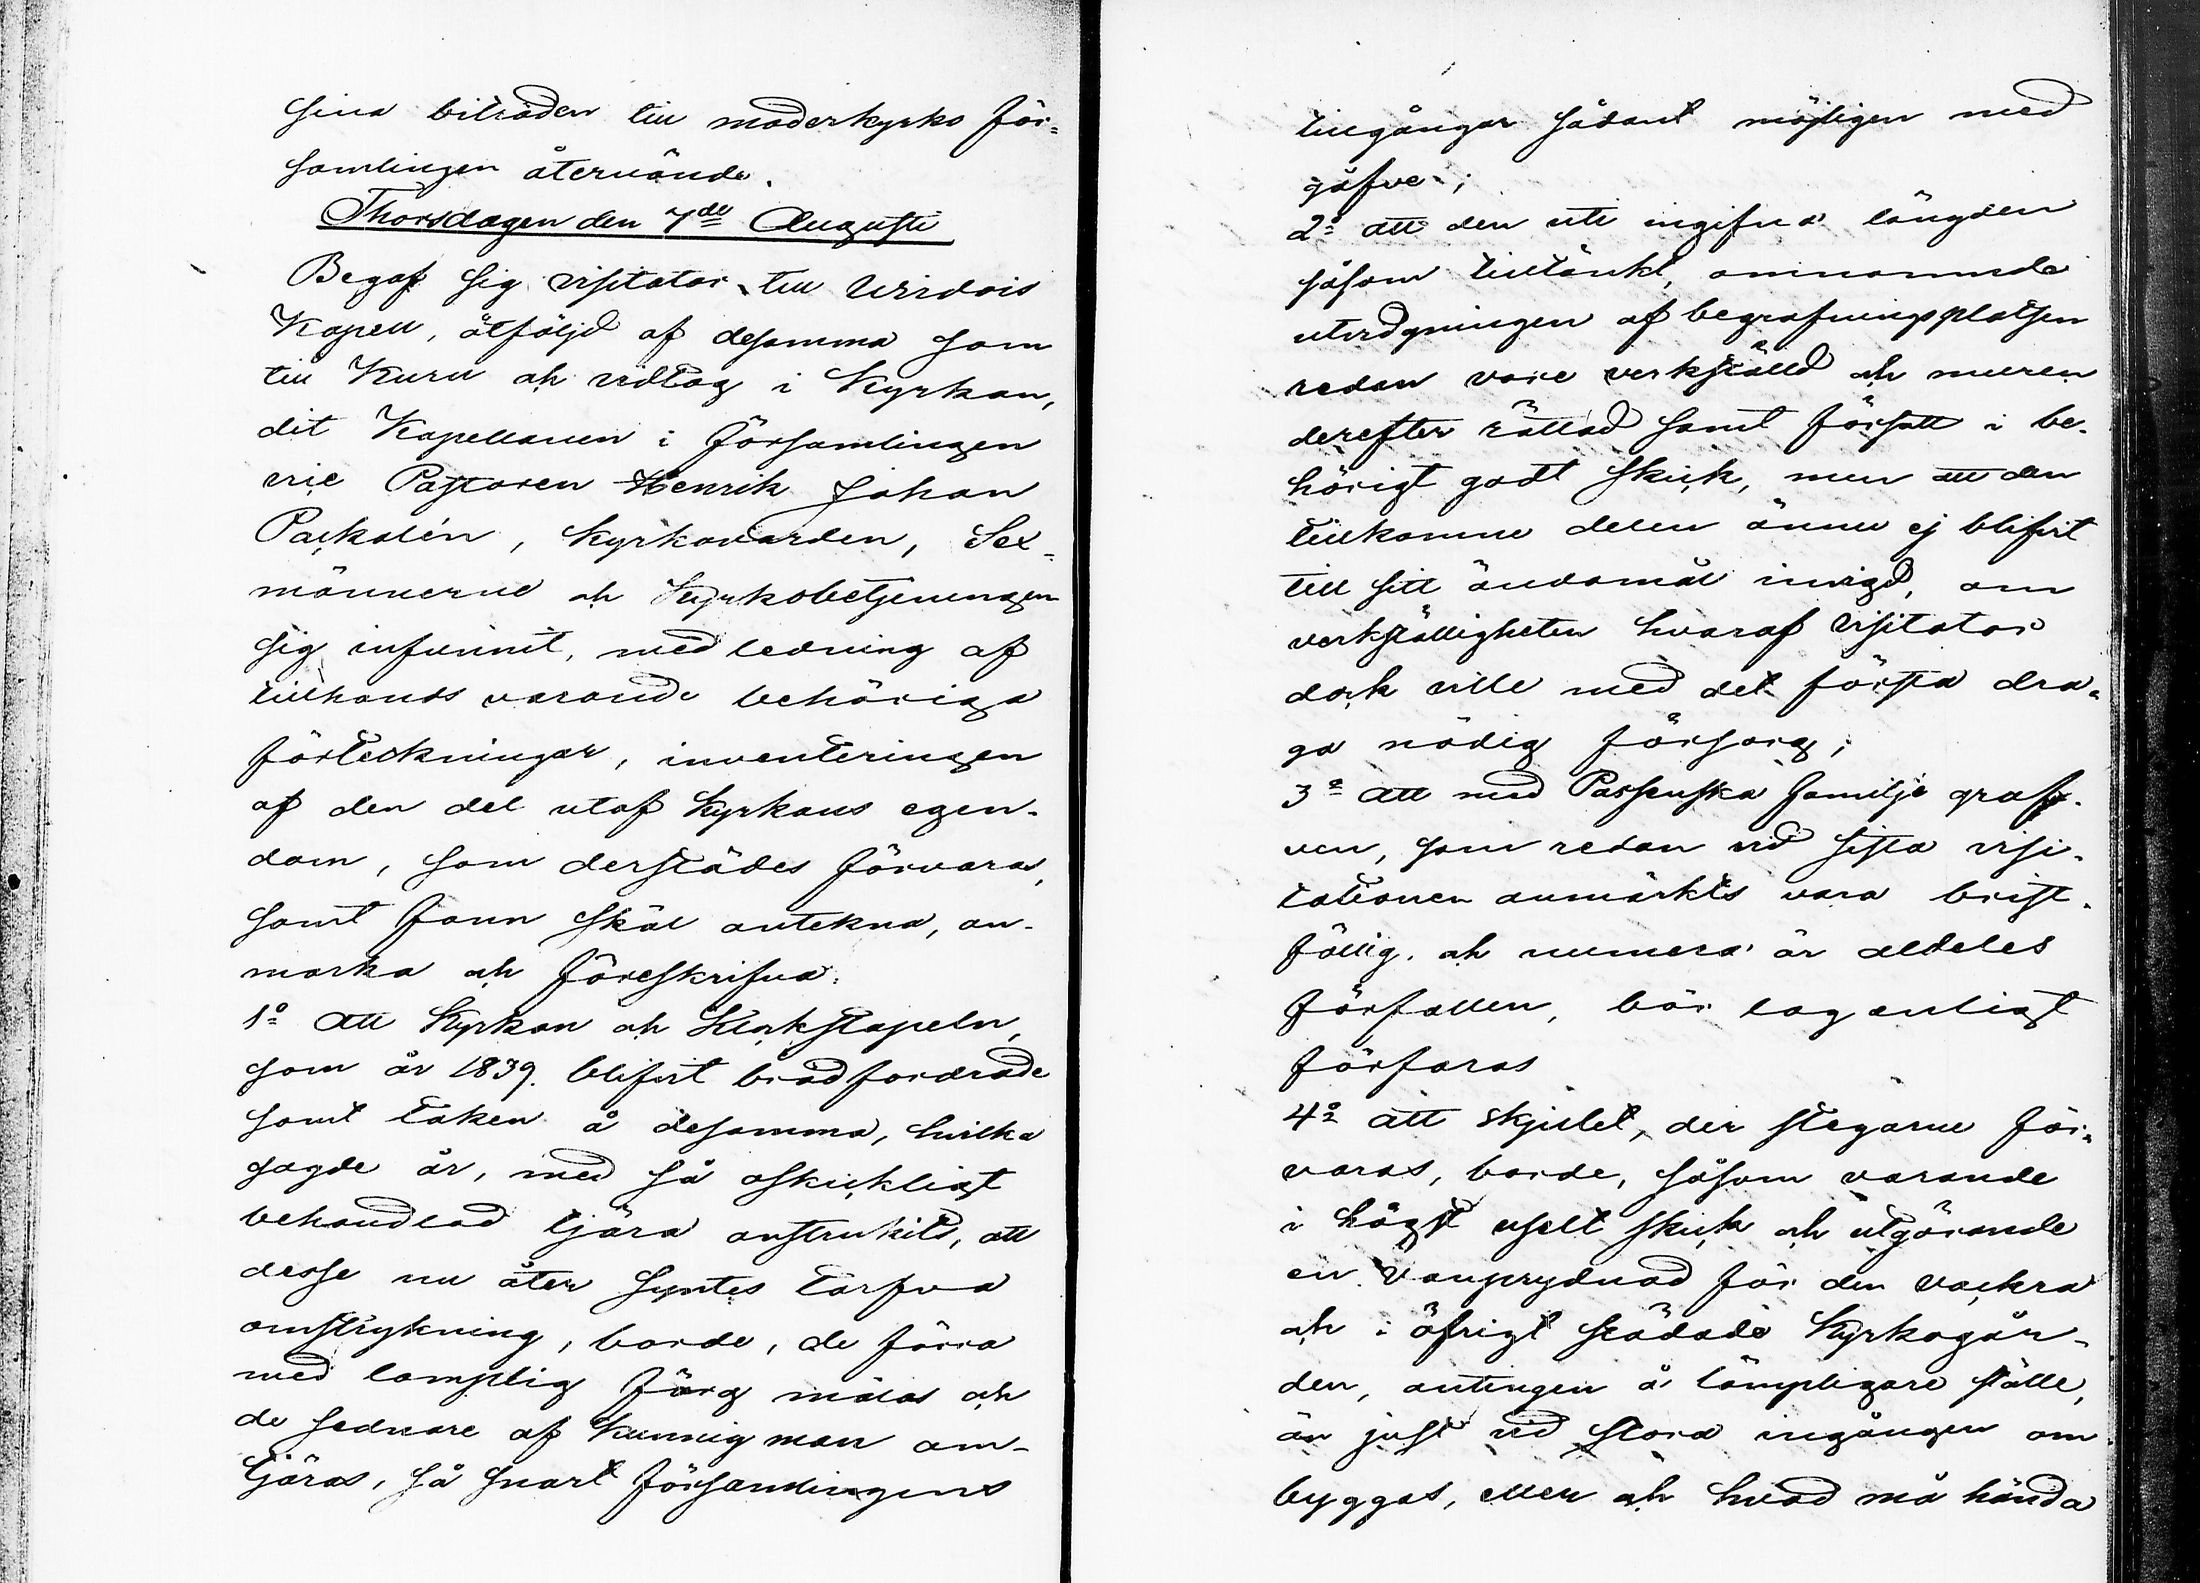 sina biträden till moderkyrko för-
samlingen återvände.
Thorsdagen den 7de Augusti
Begaf sig visitator till Virdois
Kapell, åtföljd af desamma som
till Kuru och vidtog i Kyrkan,
dit Kapellanen i församlingen
vice Pastoren Henrik Johan
Packalén, Kyrkovärden, Sex-
männerne och Kyrkobetjeningen
sig infunnit, med ledning af
tillhands varande behöriga
förteckningar, inventeringen
af den del utaf Kyrkans egen-
dom, som derstädes förvaras,
samt fann skäl antekna, an-
marka och föreskrifva:
1o att Kyrkan och Klockstapeln,
som år 1839. blifvit brädfordrade
samt taken å desamma, hvilka
sagde år, med så oskickligt
behandlad tjära anstrukits, att
desse nu åter syntes tarfva
omstrykning, borde, de förra
med lamplig färg målas och
de sednare af kunnig man om-
tjäras, så snart församlingens
tillgångar sådant möjligen med
gåfve;
2o att den uti ingifna längden
såsom tilltänkt, omnämnde
utvidgningen af begrafningsplatsen
redan vore verkställd och muren
derefter rättad samt försatt i be-
hörigt godt skick, men att den
tillkomne delen ännu ej blifvit
till sitt ändamål invigd, om
verkställigheten hvaraf visitator
dock ville med det första dra-
ga nödig försorg;
3o att med Passenska familje graf-
ven, som redan vid sista visi-
tationen anmärkts vara brist-
fällig. och numera är aldeles
förfallen, bör lagenligt
förfaras
4o att skjulet, der stegarne för-
varas, borde, såsom varande
i högst uselt skick och utgörande
en vanprydnad för den vackra
och i öfrigt städade Kyrkogår-
den, antingen å lämpligare ställe,
än just vid stora ingången om
byggas, eller och hvad må hända